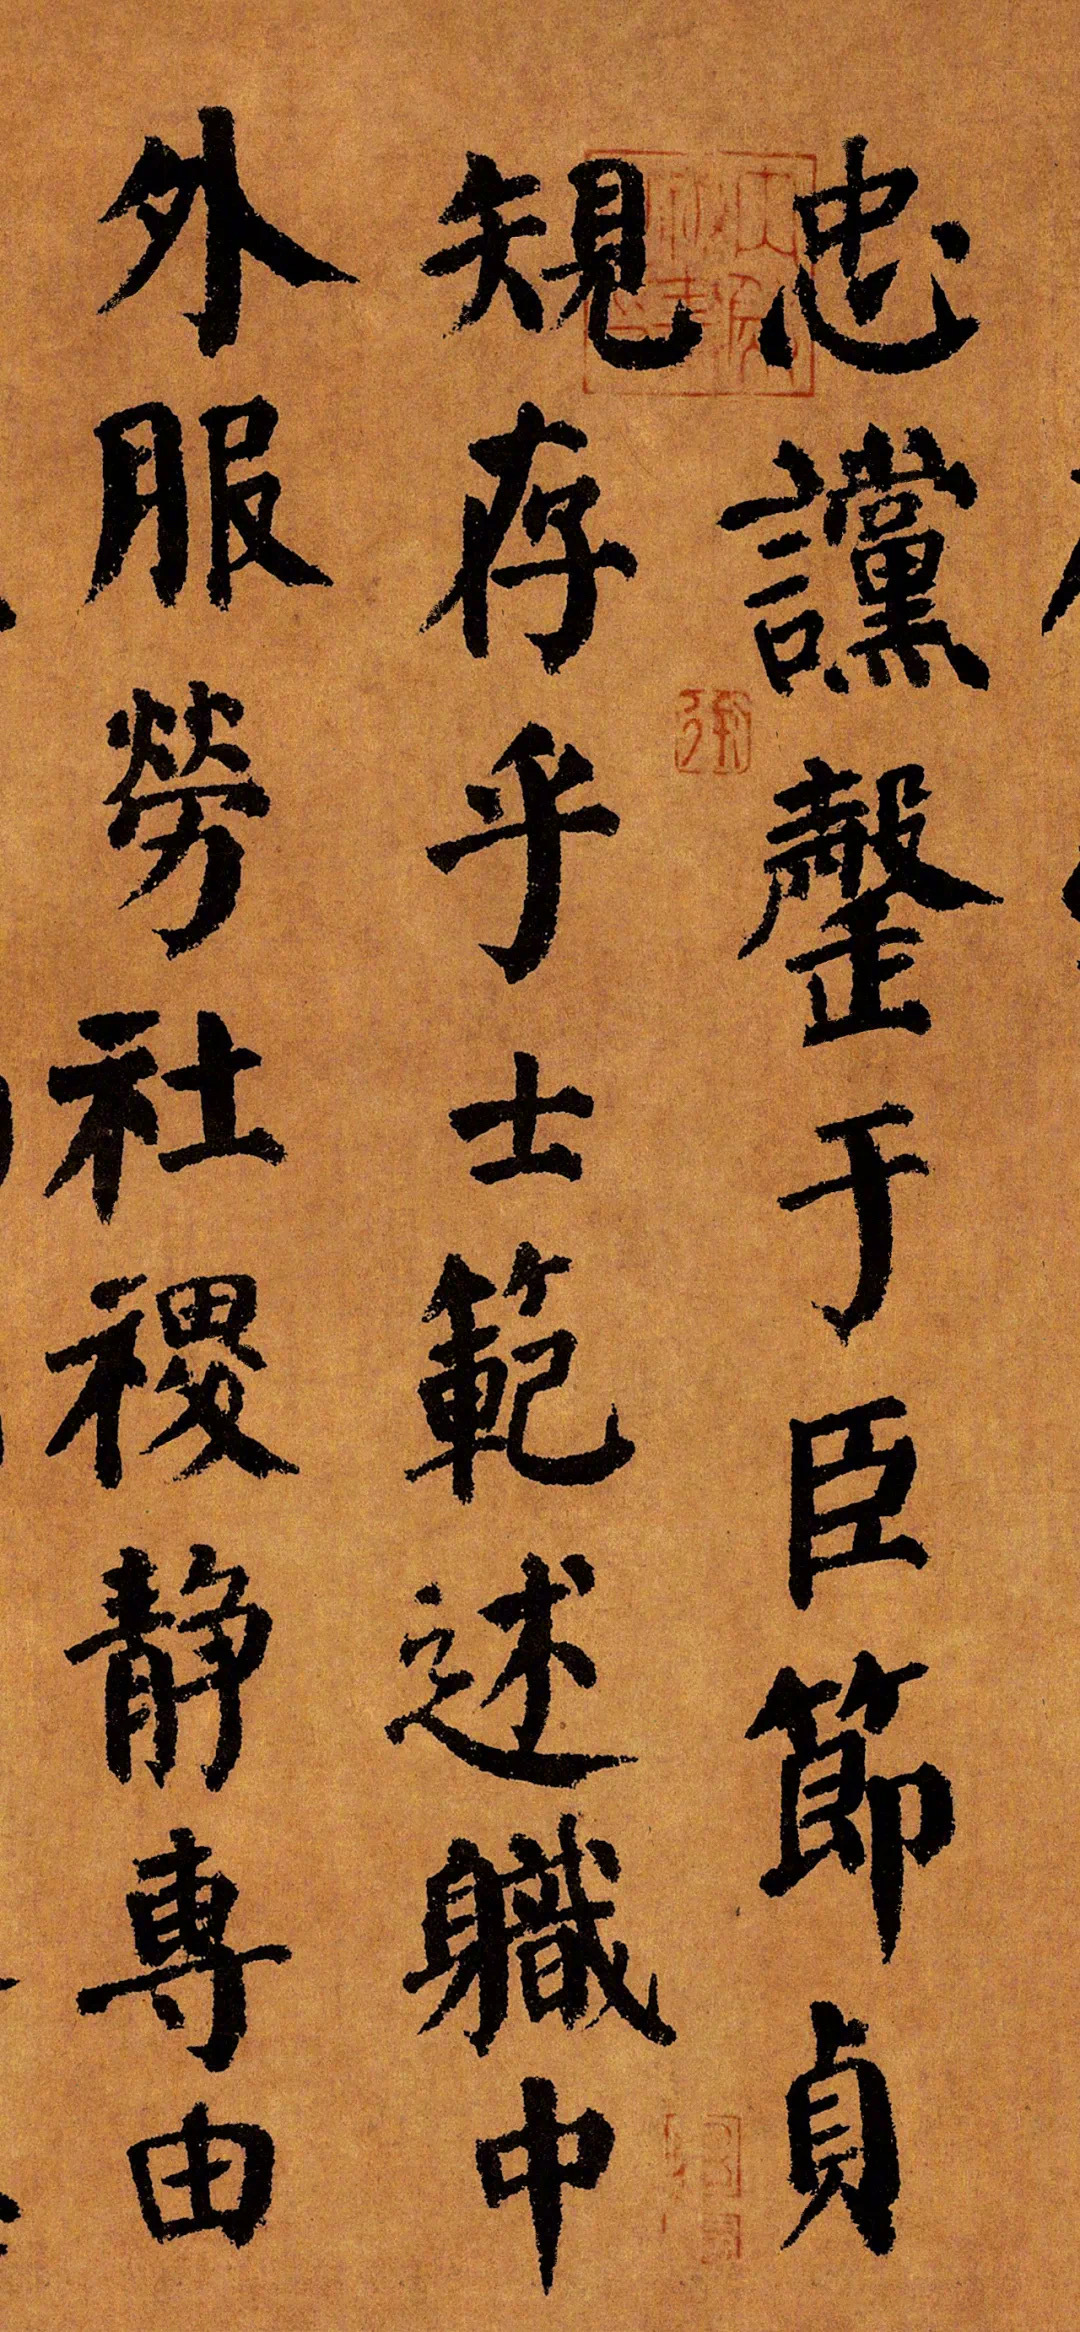 忠讜罄于臣節貞
䂓存乎士範述軄中
外服勞社稷静專由